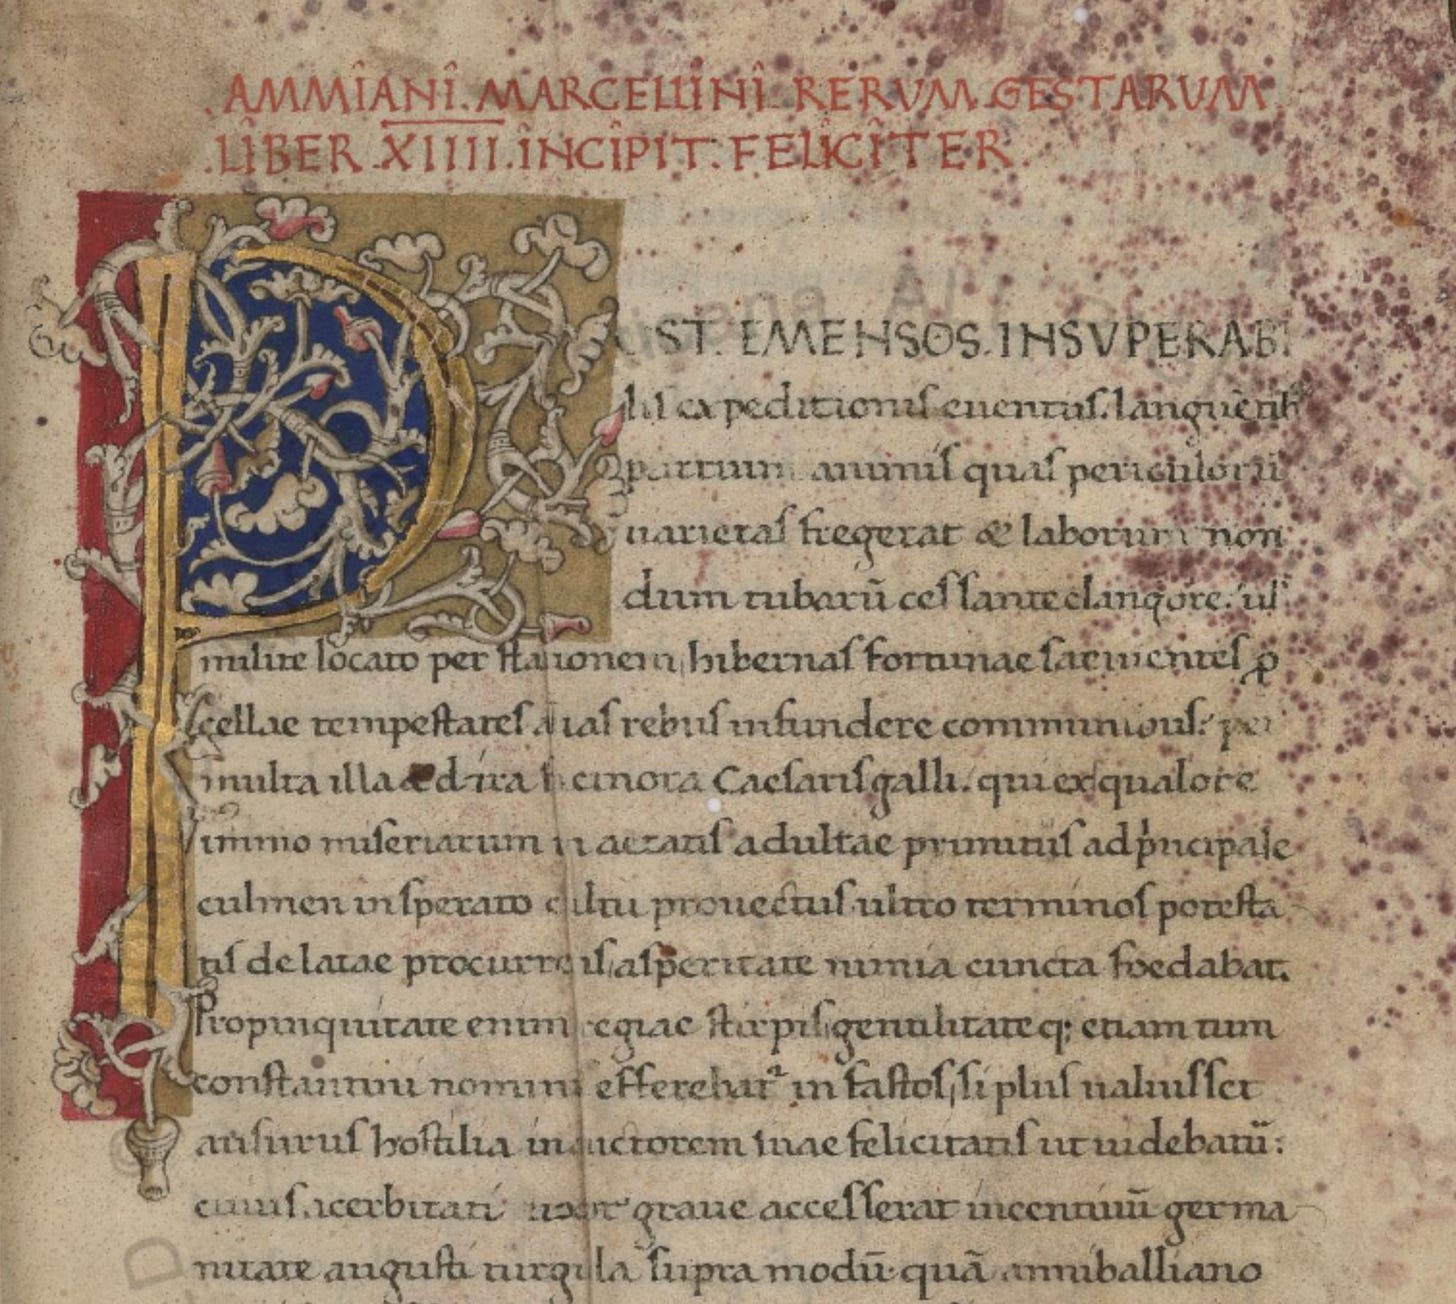 .AMMIANI.MARCELLINI.RERVM.GESTARUM.
.LIBER.XIIII.INCIPIT.FELICITER.
POST.EMENSOS.INSVPERABI
lis expeditionis euentus.languētib;
partium animis quas periculorū
uarietas fregerat & laborum non
dum tubarū cessante clangore. uł
milite locato per stationem hibernas fortunae saeuientes ꝓ
cellae tempestates alias rebus infundere communibus: per
multa illa & dira facinora Caesaris galli. qui exqualore
immo miseriarum in aetatis adultae primitus ad pͥncipale
culmen insperato cultu prouectus ultro terminos potesta
tis delatae procurrens asperitate nimia cuncta foedabat.
Propinquitate enim regiae stirpis gentilitateq; etiam tum
constantini nomini efferebat᷑ in fastos, si plus ualuisset
ausurus hostilia in auctorem suae felicitatis ut uidebatū:
cuius acerbitati uxor graue accesserat incentiuū germa
nitate augusti turgida supra modū quā anniballiano